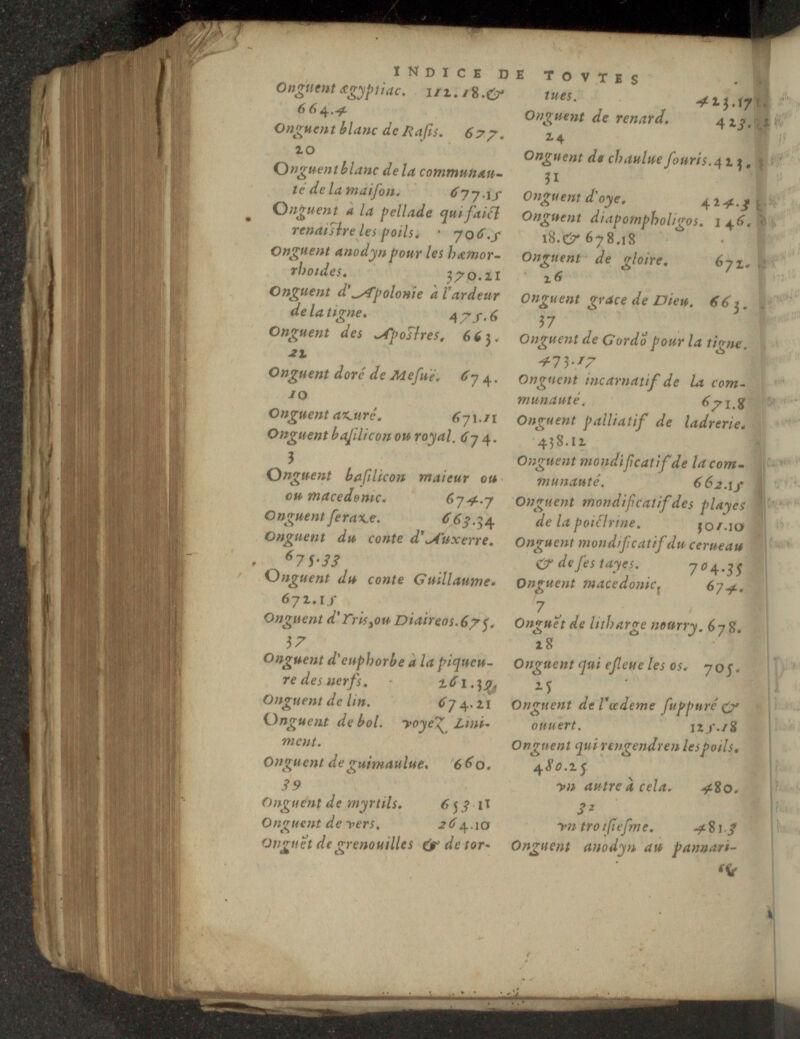 INDICE DE TOVTES
Onguent ægyptiac. 112.18.&
664.4
Onguent blanc de Rasis. 677.
20
Onguent blanc de la communau-
té de la maison. 677.15
Onguent à la pellade qui faict
renaistre les poils. 706.5
Onguent anodyn pour les hæmor-
rhoides. 370.21
Onguent d'Apolonie à l'ardeur
de la tigne. 475.6
Onguent des Apostres. 663.
21
Onguent doré de Mesuë. 674.
10
Onguent azuré. 671.11
Onguent basilicon ou royal. 674.
3
Onguent basilicon maieur ou
ou macedonic. 674.7
Onguent feraze. 663.34
Onguent du conte d'Auxerre.
675.33
Onguent du conte Guillaume.
672.15
Onguent d'Yris, ou Diaireos. 675.
37
Onguent d'euphorbe à la piqueu-
re des nerfs. 261.39
Onguent de lin. 674.21
Onguent de bol. voyez Lini-
ment.
Onguent de guimaulue. 660.
39
Onguent de myrtils. 653 11
Onguent de vers. 264.10
Onguẽt de grenouilles & de tor-
tues. 423.17
Onguent de renard. 423.
24
Onguent de chaulue souris. 423.
31
Onguent d'oye. 424.3
Onguent diapompholigos. 146.
18.& 678.18
Onguent de gloire. 672.
26
Onguent grace de Dieu. 663.
37
Onguent de Gordõ pour la tigne.
473.17
Onguent incarnatif de la com-
munauté. 671.8
Onguent palliatif de ladrerie.
438.12
Onguent mondificatif de la com-
munauté. 662.15
Onguent mondificatif des playes
de la poictrine. 301.10
Onguent mondificatif du cerueau
& de ses tayes. 704.35
Onguent macedonic. 674.
7
Onguẽt de litharge nourry. 678.
28
Onguent qui esleue les os. 705.
25
Onguent de l'œdeme suppuré &
ouuert. 125.18
Onguent qui rengendren les poils.
480.25
vn autre à cela. 480.
32
vn troisiesme. 481.3
Onguent anodyn au pannari-